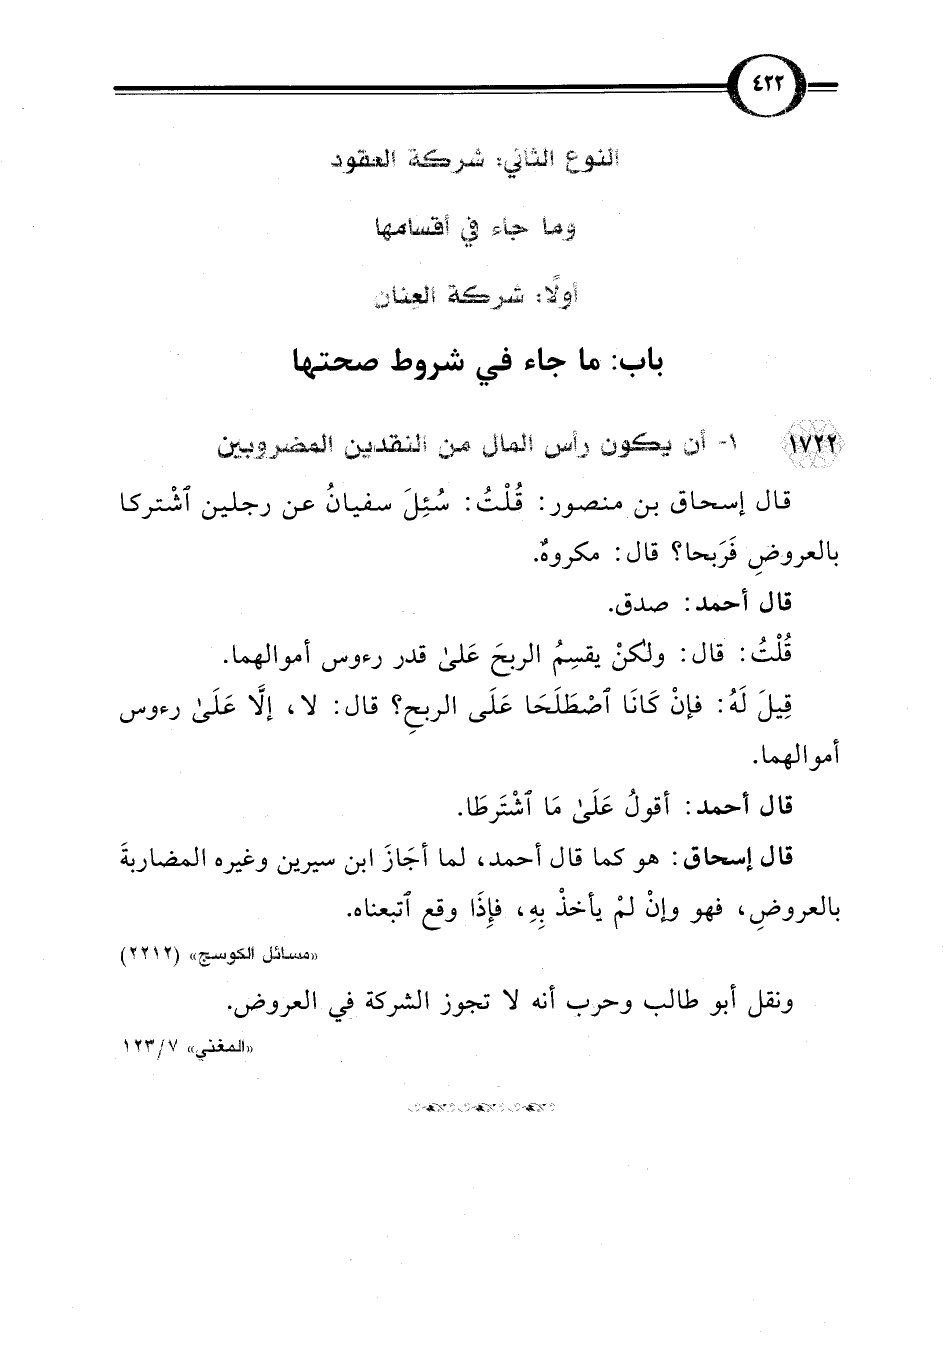 ٤٢٢
النوع الثاني: شركة العقود
وما جاء في أقسامها
أولًا: شركة العِنان
باب: ما جاء في شروط صحتها
١٧٢٢ ١- أن يكون رأس المال من النقدين المضروبين
قال إسحاق بن منصور: قُلْتُ: سُئِلَ سفيانُ عن رجلين ٱشْتركا
بالعروضِ فَرَبحا؟ قال: مكروهٌ.
قال أحمد: صدق.
قُلْتُ: قال: ولكنْ يقسِمُ الربحَ عَلىٰ قدر رءوس أموالهما.
قِيلَ لَهُ: فإنْ كَانَا ٱصْطَلَحَا عَلَى الربحِ؟ قال: لا، إلَّا عَلَىٰ رءوس
أموالهما.
قال أحمد: أقولُ عَلَىٰ مَا ٱشْتَرَطَا.
قال إسحاق: هو كما قال أحمد، لما أجَازَ ابن سيرين وغيره المضاربةَ
بالعروضِ، فهو وإنْ لمْ يأخذْ بِهِ، فإِذَا وقع ٱتبعناه.
«مسائل الكوسج» (٢٢١٢)
ونقل أبو طالب وحرب أنه لا تجوز الشركة في العروض.
«المغني» ٧/١٢٣